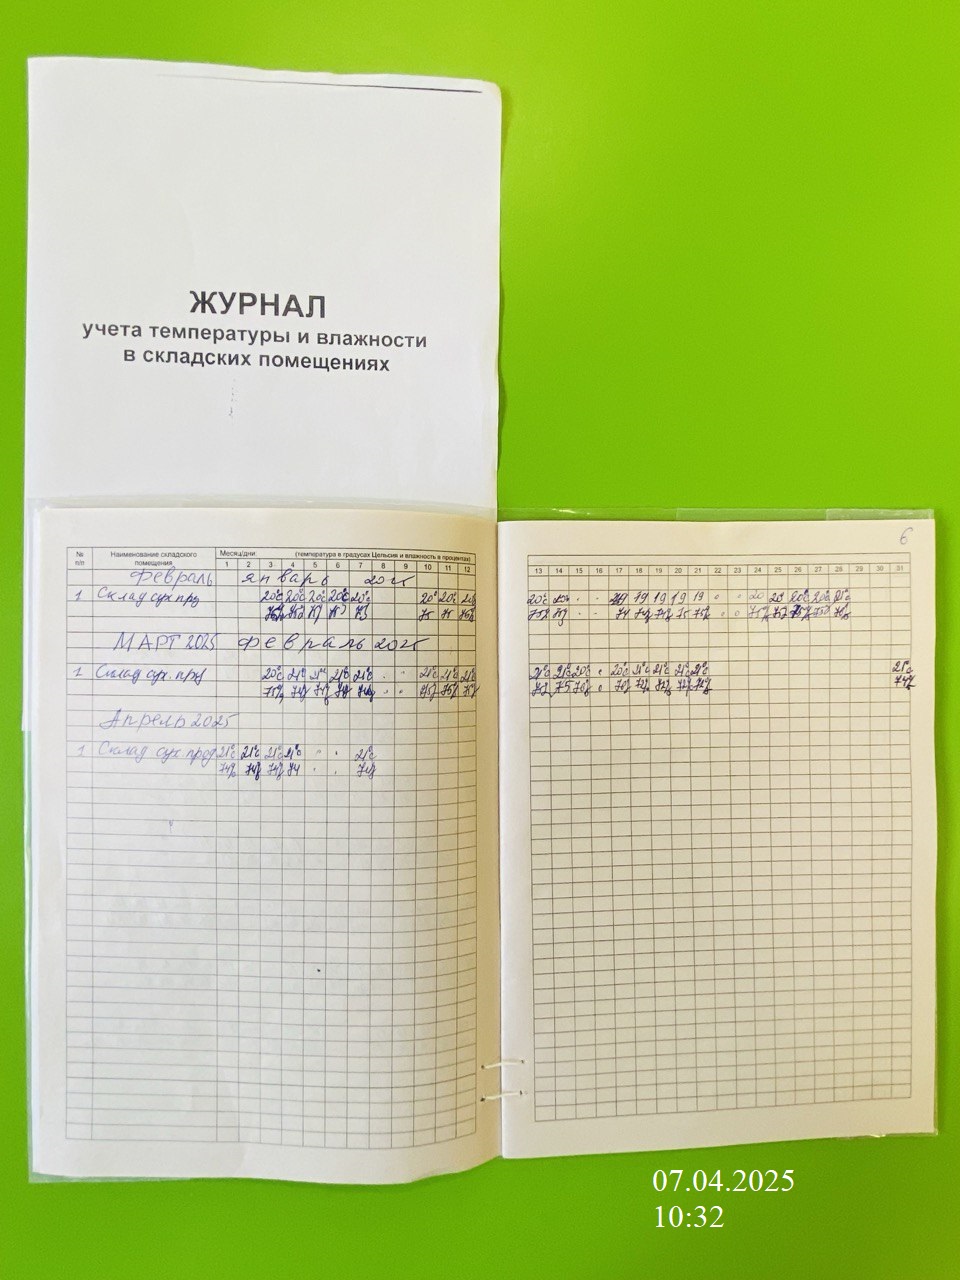 ЖУРНАЛ
учета температуры и влажности
в складских помещениях
№ п/п Наименование складского помещения Месяц/дни (температура в градусах Цельсия и влажность в процентах)
1 2 3 4 5 6 7 8 9 10 11 12
Февраль январь 2025
1 Склад сух прд 20°С 20°С 20°С 20°С 20°С 20° 20°С
75 75
МАРТ 2025 февраль 2025
1 Склад сух. прд 20°С 21°С 21°С 21°С 21°С 21°С 21°С 21°С
75% 74% 74% 75% 75% 75%
Апрель 2025
1 Склад сух прод 21°С 21°С 21°С 21°С 21°С
74% 74% 74% 74 74%
6
13 14 15 16 17 18 19 20 21 22 23 24 25 26 27 28 29 30 31
20°С 20° 19 19 19 19 20 20° 20°С 20°С 21°С
75% 74 74% 74% 75 75% 75% 75%
21°С 21°С 20°С 20°С 21°С 21°С 21°С 21°С 21°С
75 74%
07.04.2025
10:32